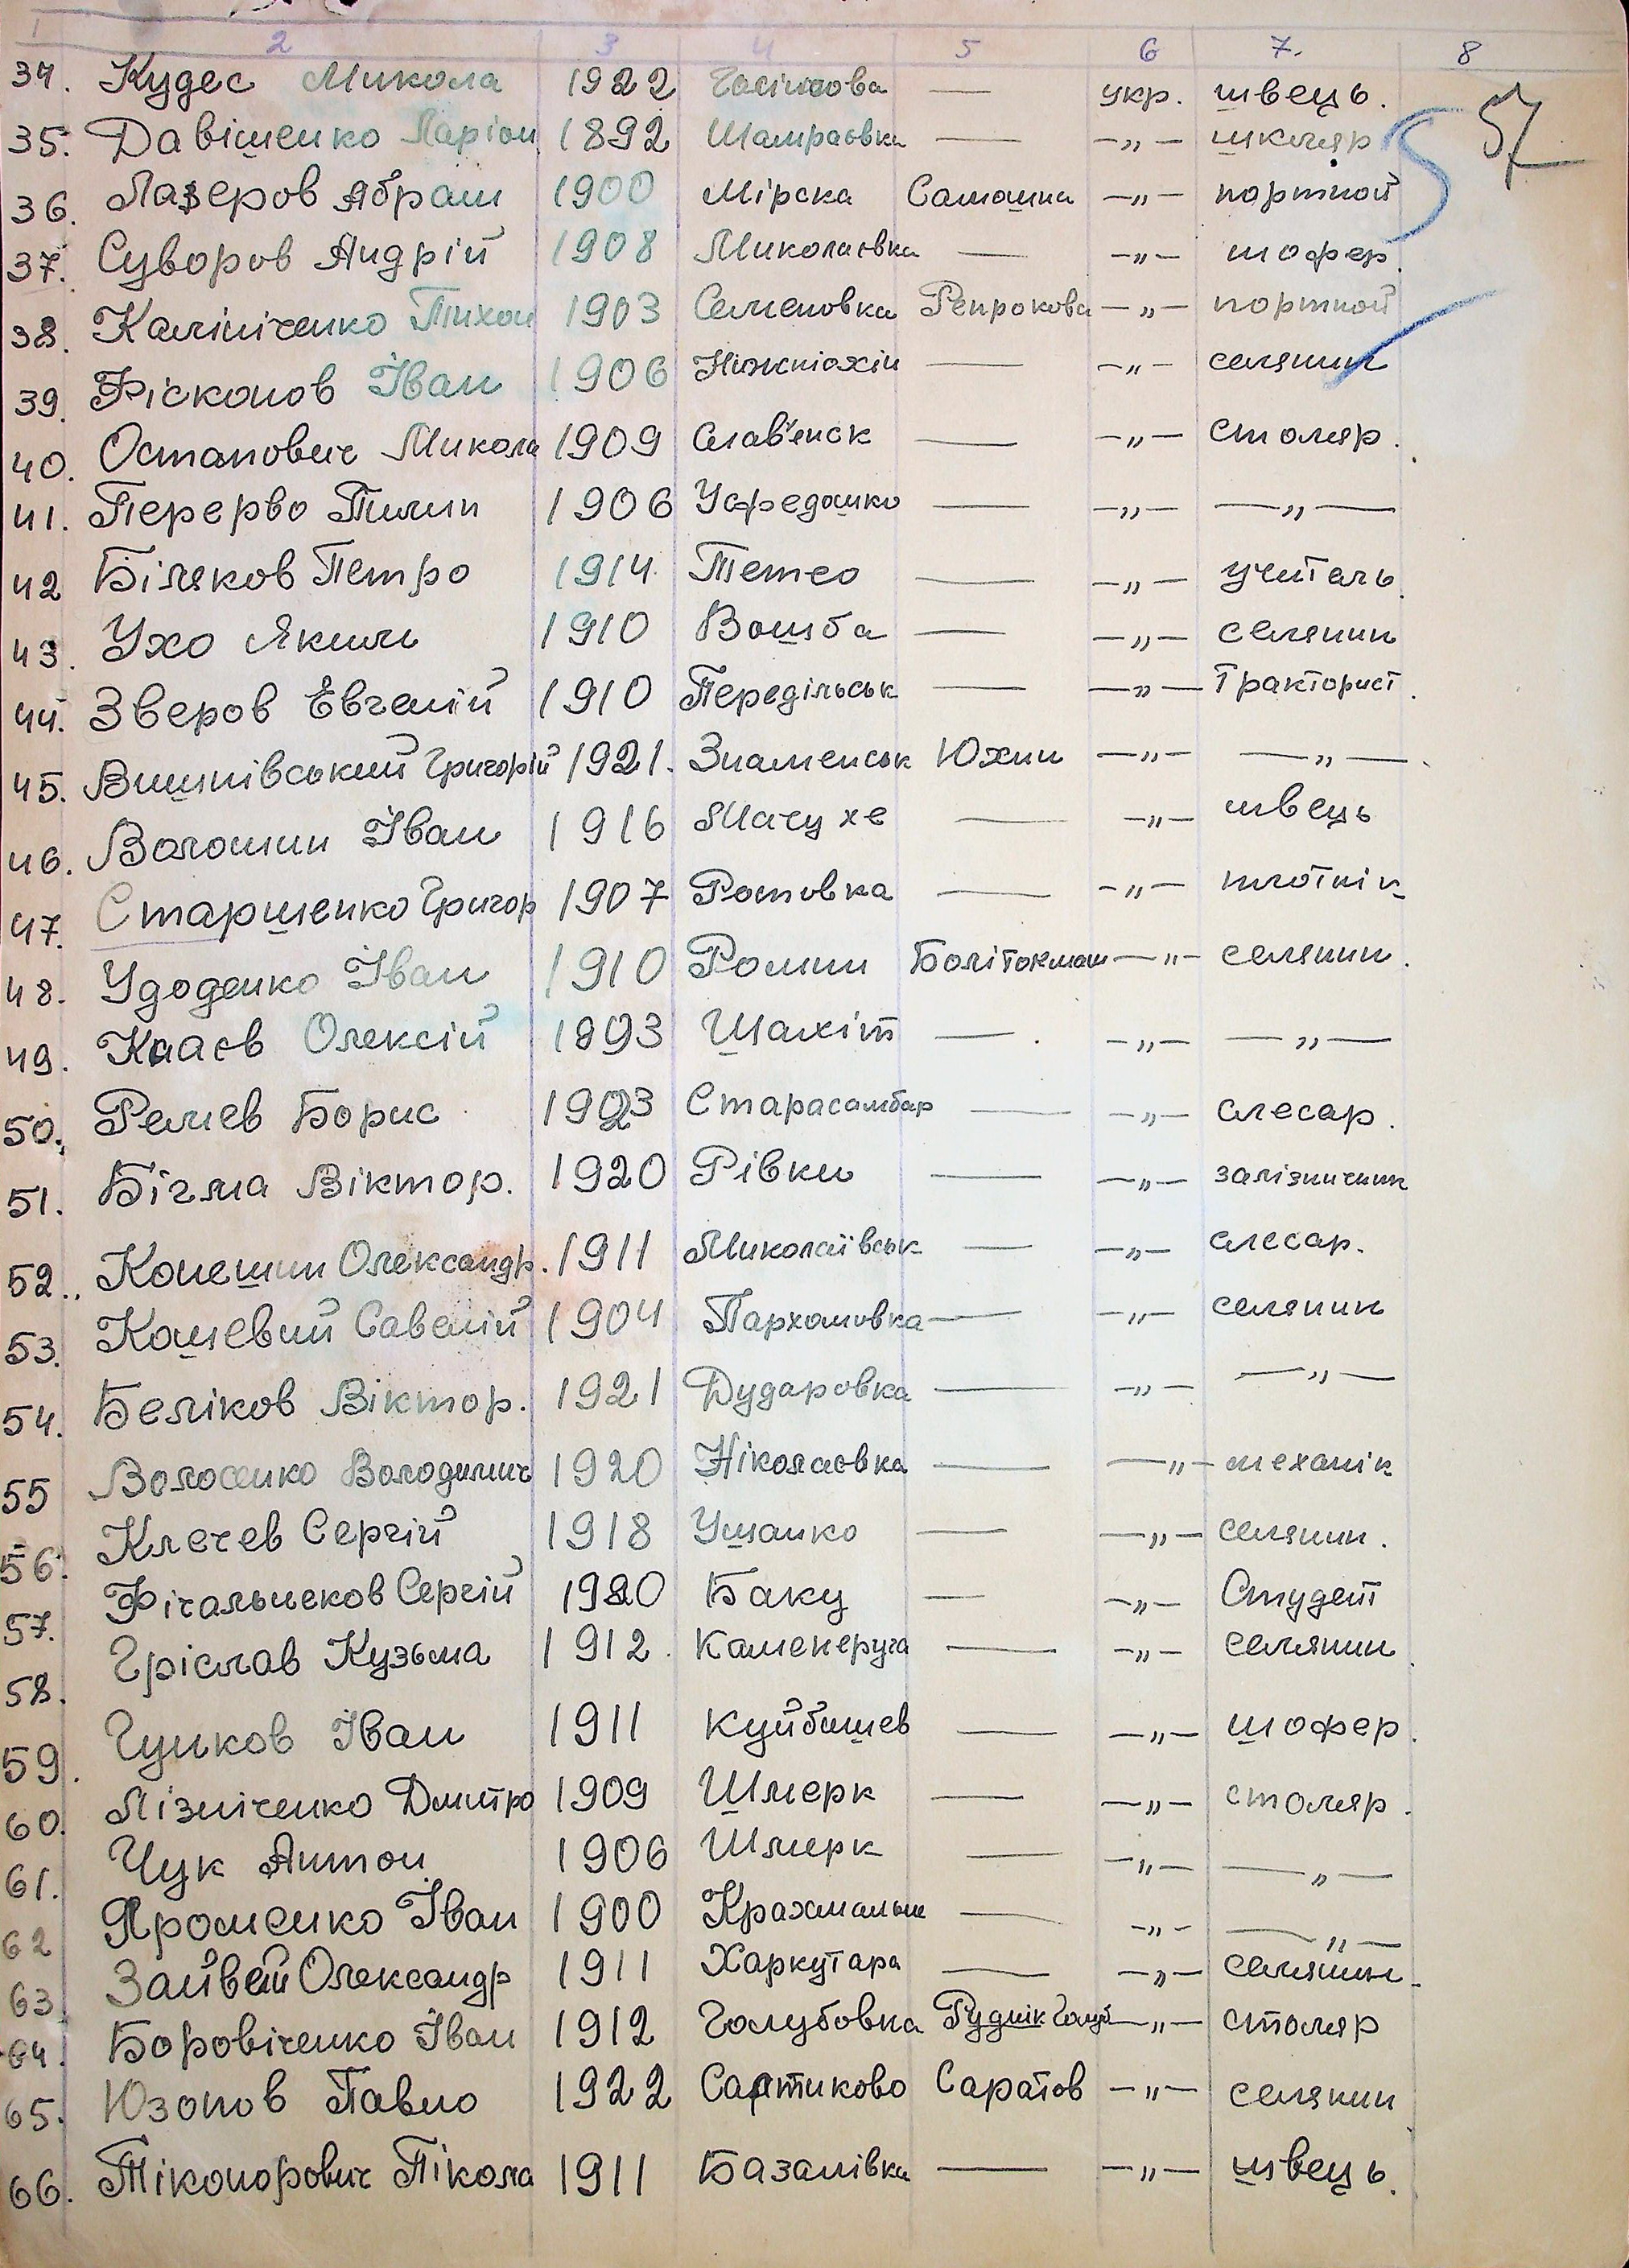 1 2 3 4 5 6 7. 8
57
34. Кудес Микола 1922 — укр. швець.
35. Давішенко Ларіон 1892 Шамраєвка — -„- шкляр
36. Лазеров Абрам 1900 Мірска Самашка -„- портной
37. Суворов Андрій 1908 Миколаєвка — -„- шофер.
38. Калініченко Тихон 1903 Семеновка Репрокова -„- портной
39. Фісконов Іван 1906 — -„- селянин
40. Остапович Микола 1909 Слав'енск — -„- столяр.
41. Перерво Пилип 1906 — -„- —„—
42 Біляков Петро 1914 Тетео — -„- учитель.
43. Ухо Яким 1910 Вошба — -„- селянин
44. Зверов Евгеній 1910 Передільськ — —„— тракторист.
45. Вишнівський Григорій 1921. Знаменськ Южни -„- —„—.
46. Волошин Іван 1916 Мачухе — -„- швець
47. Старшенко Григор 1907 Ротовка — -„- плотнік
48. Удоденко Іван 1910 Ромни Болітокмаш -„- селянин.
49. Кааєв Олексій 1893 Шахіт — -„- —„—
50. Ремев Борис 1923 Старасамбар — -„- слесар.
51. Бігма Віктор. 1920 Рівки — -„- залізничник
52. Конешин Олександр. 1911 Миколаївськ — -„- слесар.
53. Кошевий Савелій 1904 Пархомовка — -„- селянин
54. Беліков Віктор. 1921 Дударовка — -„- —„—
55 Волосенко Володимир 1920 Ніколаєвка — —„- механік
56. Клечев Сергій 1918 Ушанко — -„- селянин.
57. Фігальнеков Сергій 1920 Баку — -„- Студент
58. Гріслав Кузьма 1912. Каменеруга — -„- селянин.
59. Гунков Іван 1911 Куйбишев — -„- шофер.
60. Лізніченко Дмитро 1909 Шмерк — -„- столяр.
61. Чук Антон 1906 Шмерк — -„- —„—
62 Яроменко Іван 1900 — -„- —„—
63. Олександр 1911 Харкутара — -„- селянин.
64. Боровіченко Іван 1912 Голубовка Руднік Голуб -„- столяр
65. Юзонов Павло 1922 Сартиково Саратов -„- селянин
66. Тіконорович Ніколa 1911 Базалівка — -„- швець.